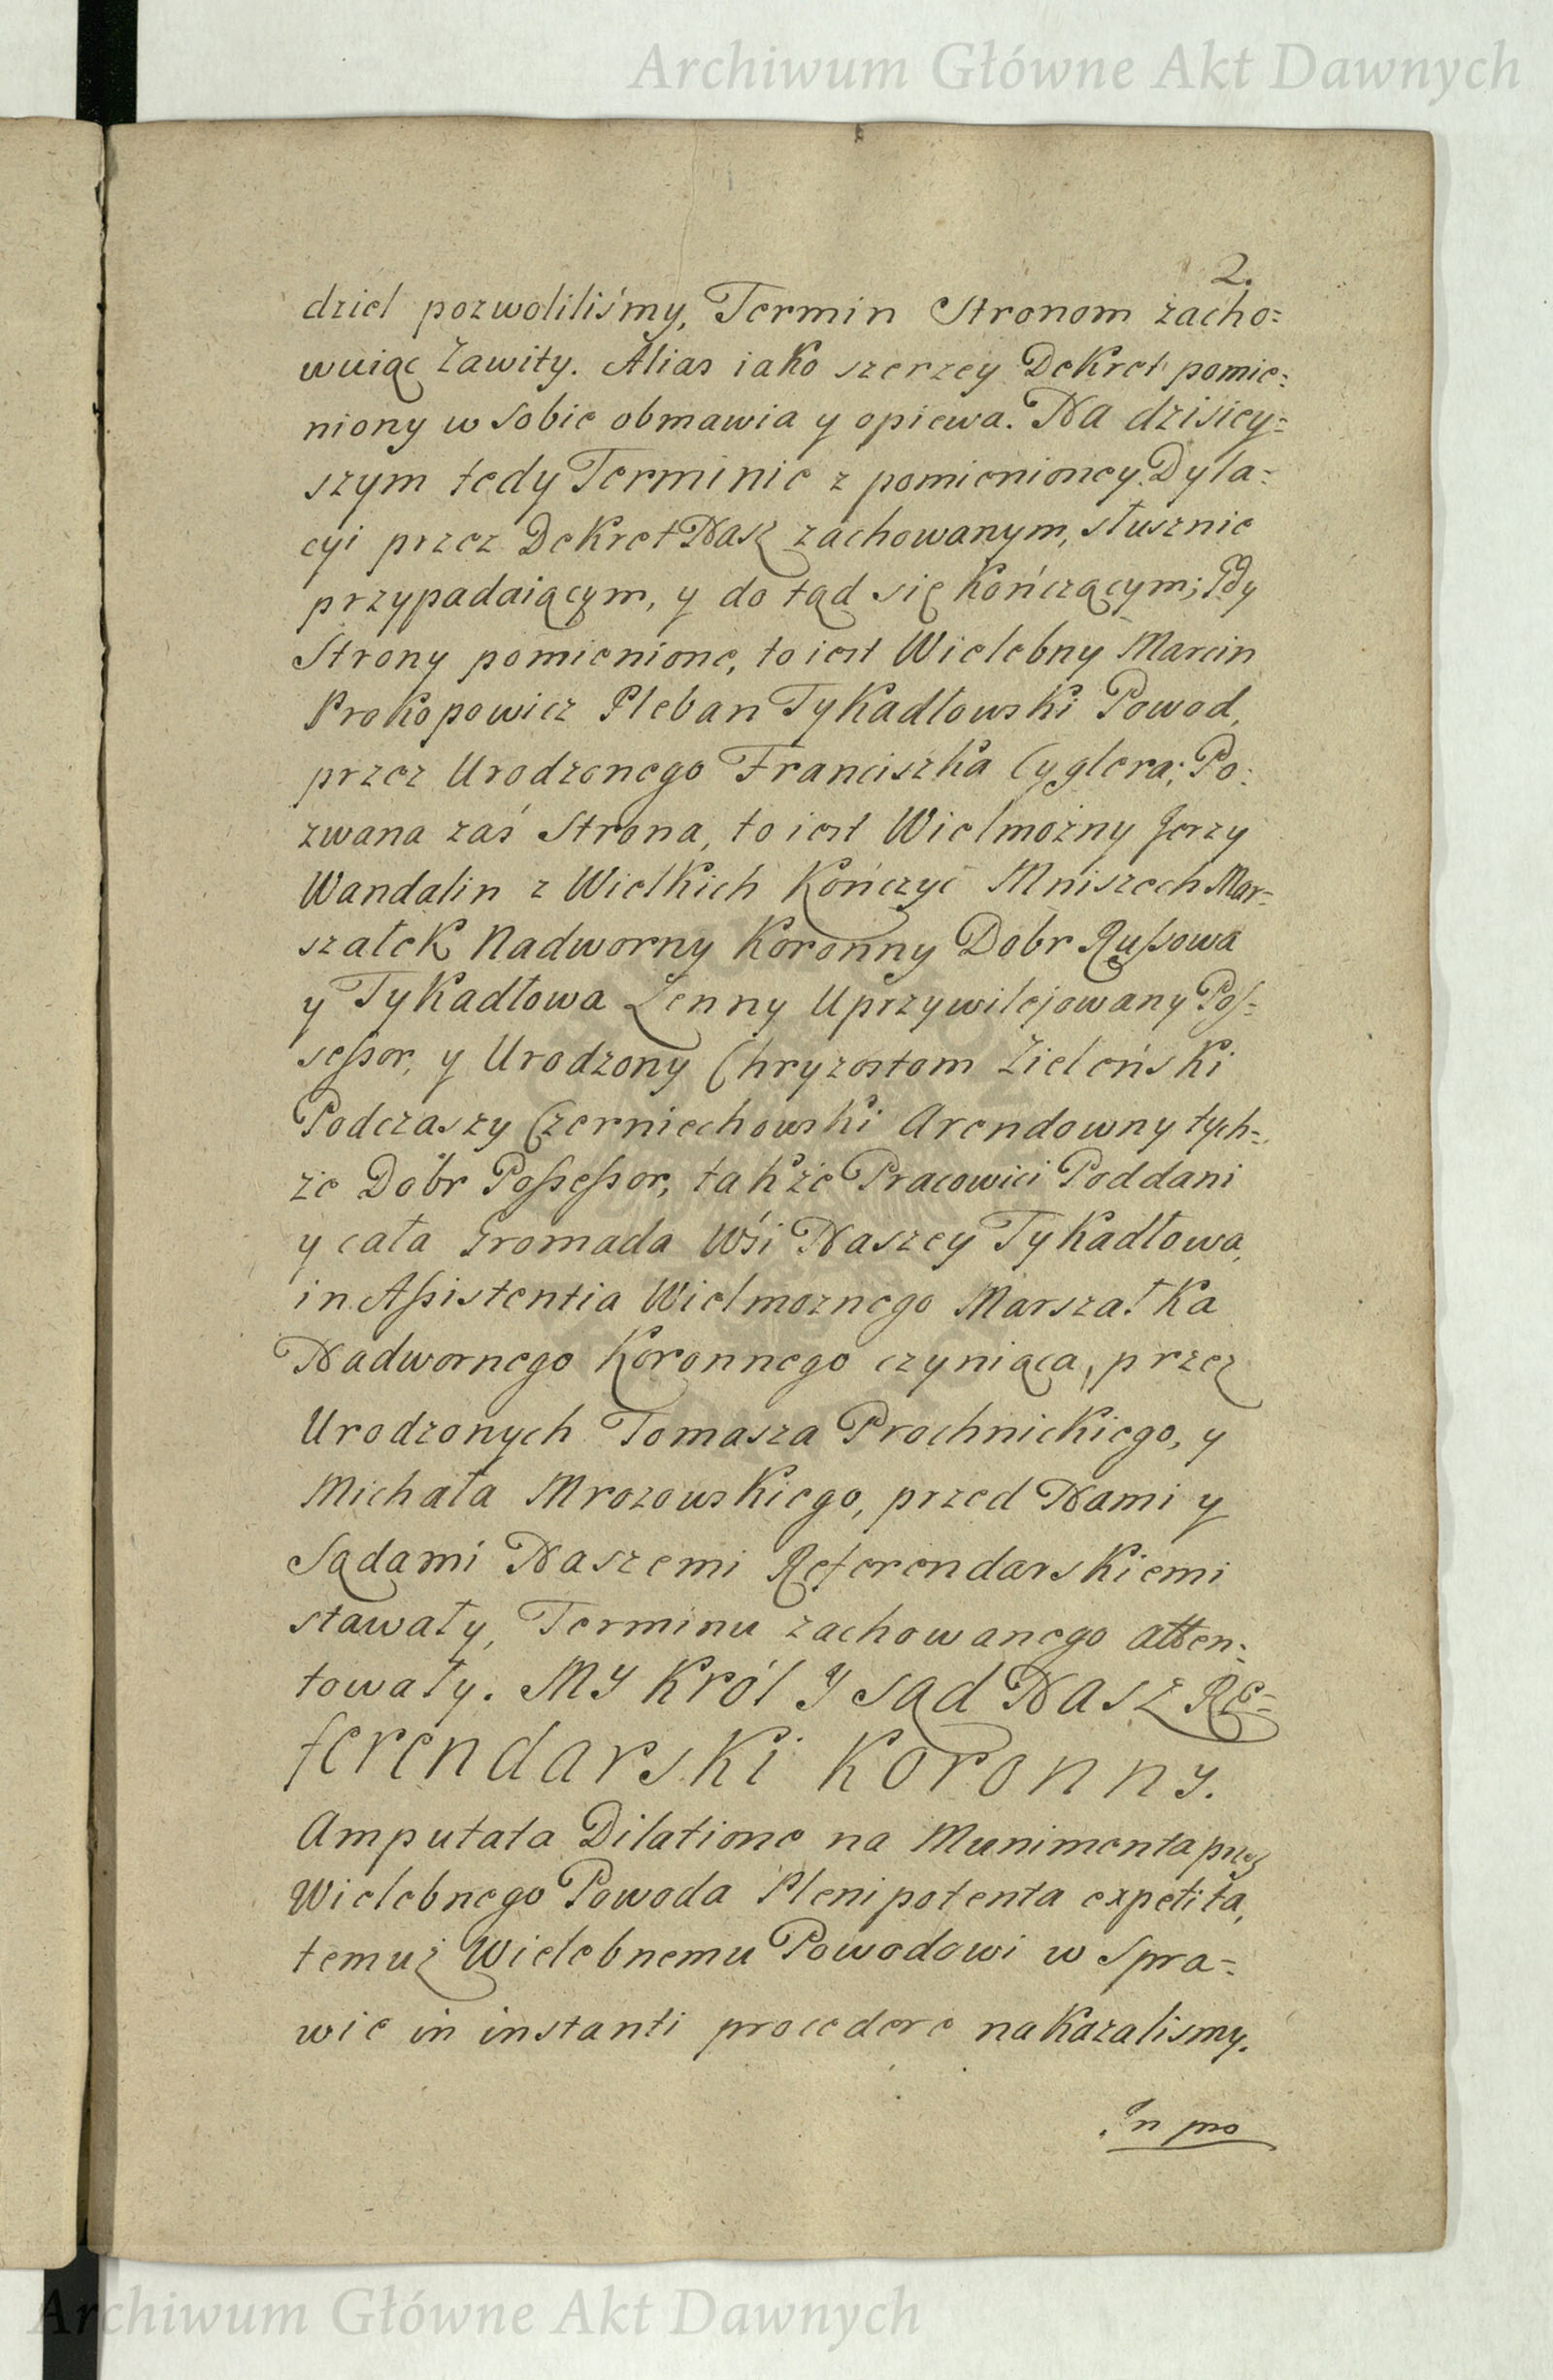 Archiwum Główne Akt Dawnych
2.
dziel pozwoliliśmy, Termin Stronom zacho=
wuiąc Zawity. Alias iako szerzey Dekret pomie=
niony w sobie obmawia y opiewa. Na dzisiey=
szym tedy Terminie z pomienioney Dyla=
cyi przez Dekret Nasz zachowanym, słusznie
przypadaiącym, y do tąd się kończącym; Gdy
Strony pomienione, to iest Wielebny Marcin
Prokopowicz Pleban Tykadłowski Powod,
przez Urodzonego Franciszka Cyglera; Po=
zwana zaś Strona, to iest Wielmożny Jerzy
Wandalin z Wielkich Kończyc Mniszech Mar=
szałek Nadworny Koronny Dobr Russowa
y Tykadłowa Lenny Uprzywilejowany Pos=
sessor, y Urodzony Chryzostom Zieleński
Podczaszy Czerniechowski Arendowny tych=
że Dobr Possessor, także Pracowici Poddani
y cała Gromada Wśi Naszey Tykadłowa,
in Assistentia Wielmoznego Marszałka
Nadwornego Koronnego czyniąca, przez
Urodzonych Tomasza Prochnickiego, y
Michała Mrozowskiego, przed Nami y
Sądami Naszemi Referendarskiemi
stawały, Terminu zachowanego atten=
towały. MY Król Y sąd Nasz Re=
ferendarski Koronny.
Amputata Dilatione na Munimenta przez
Wielebnego Powoda Plenipotenta expetita,
temuż Wielebnemu Powodowi w Spra=
wie in instanti procedere nakazalismy.
In pro
Archiwum Główne Akt Dawnych